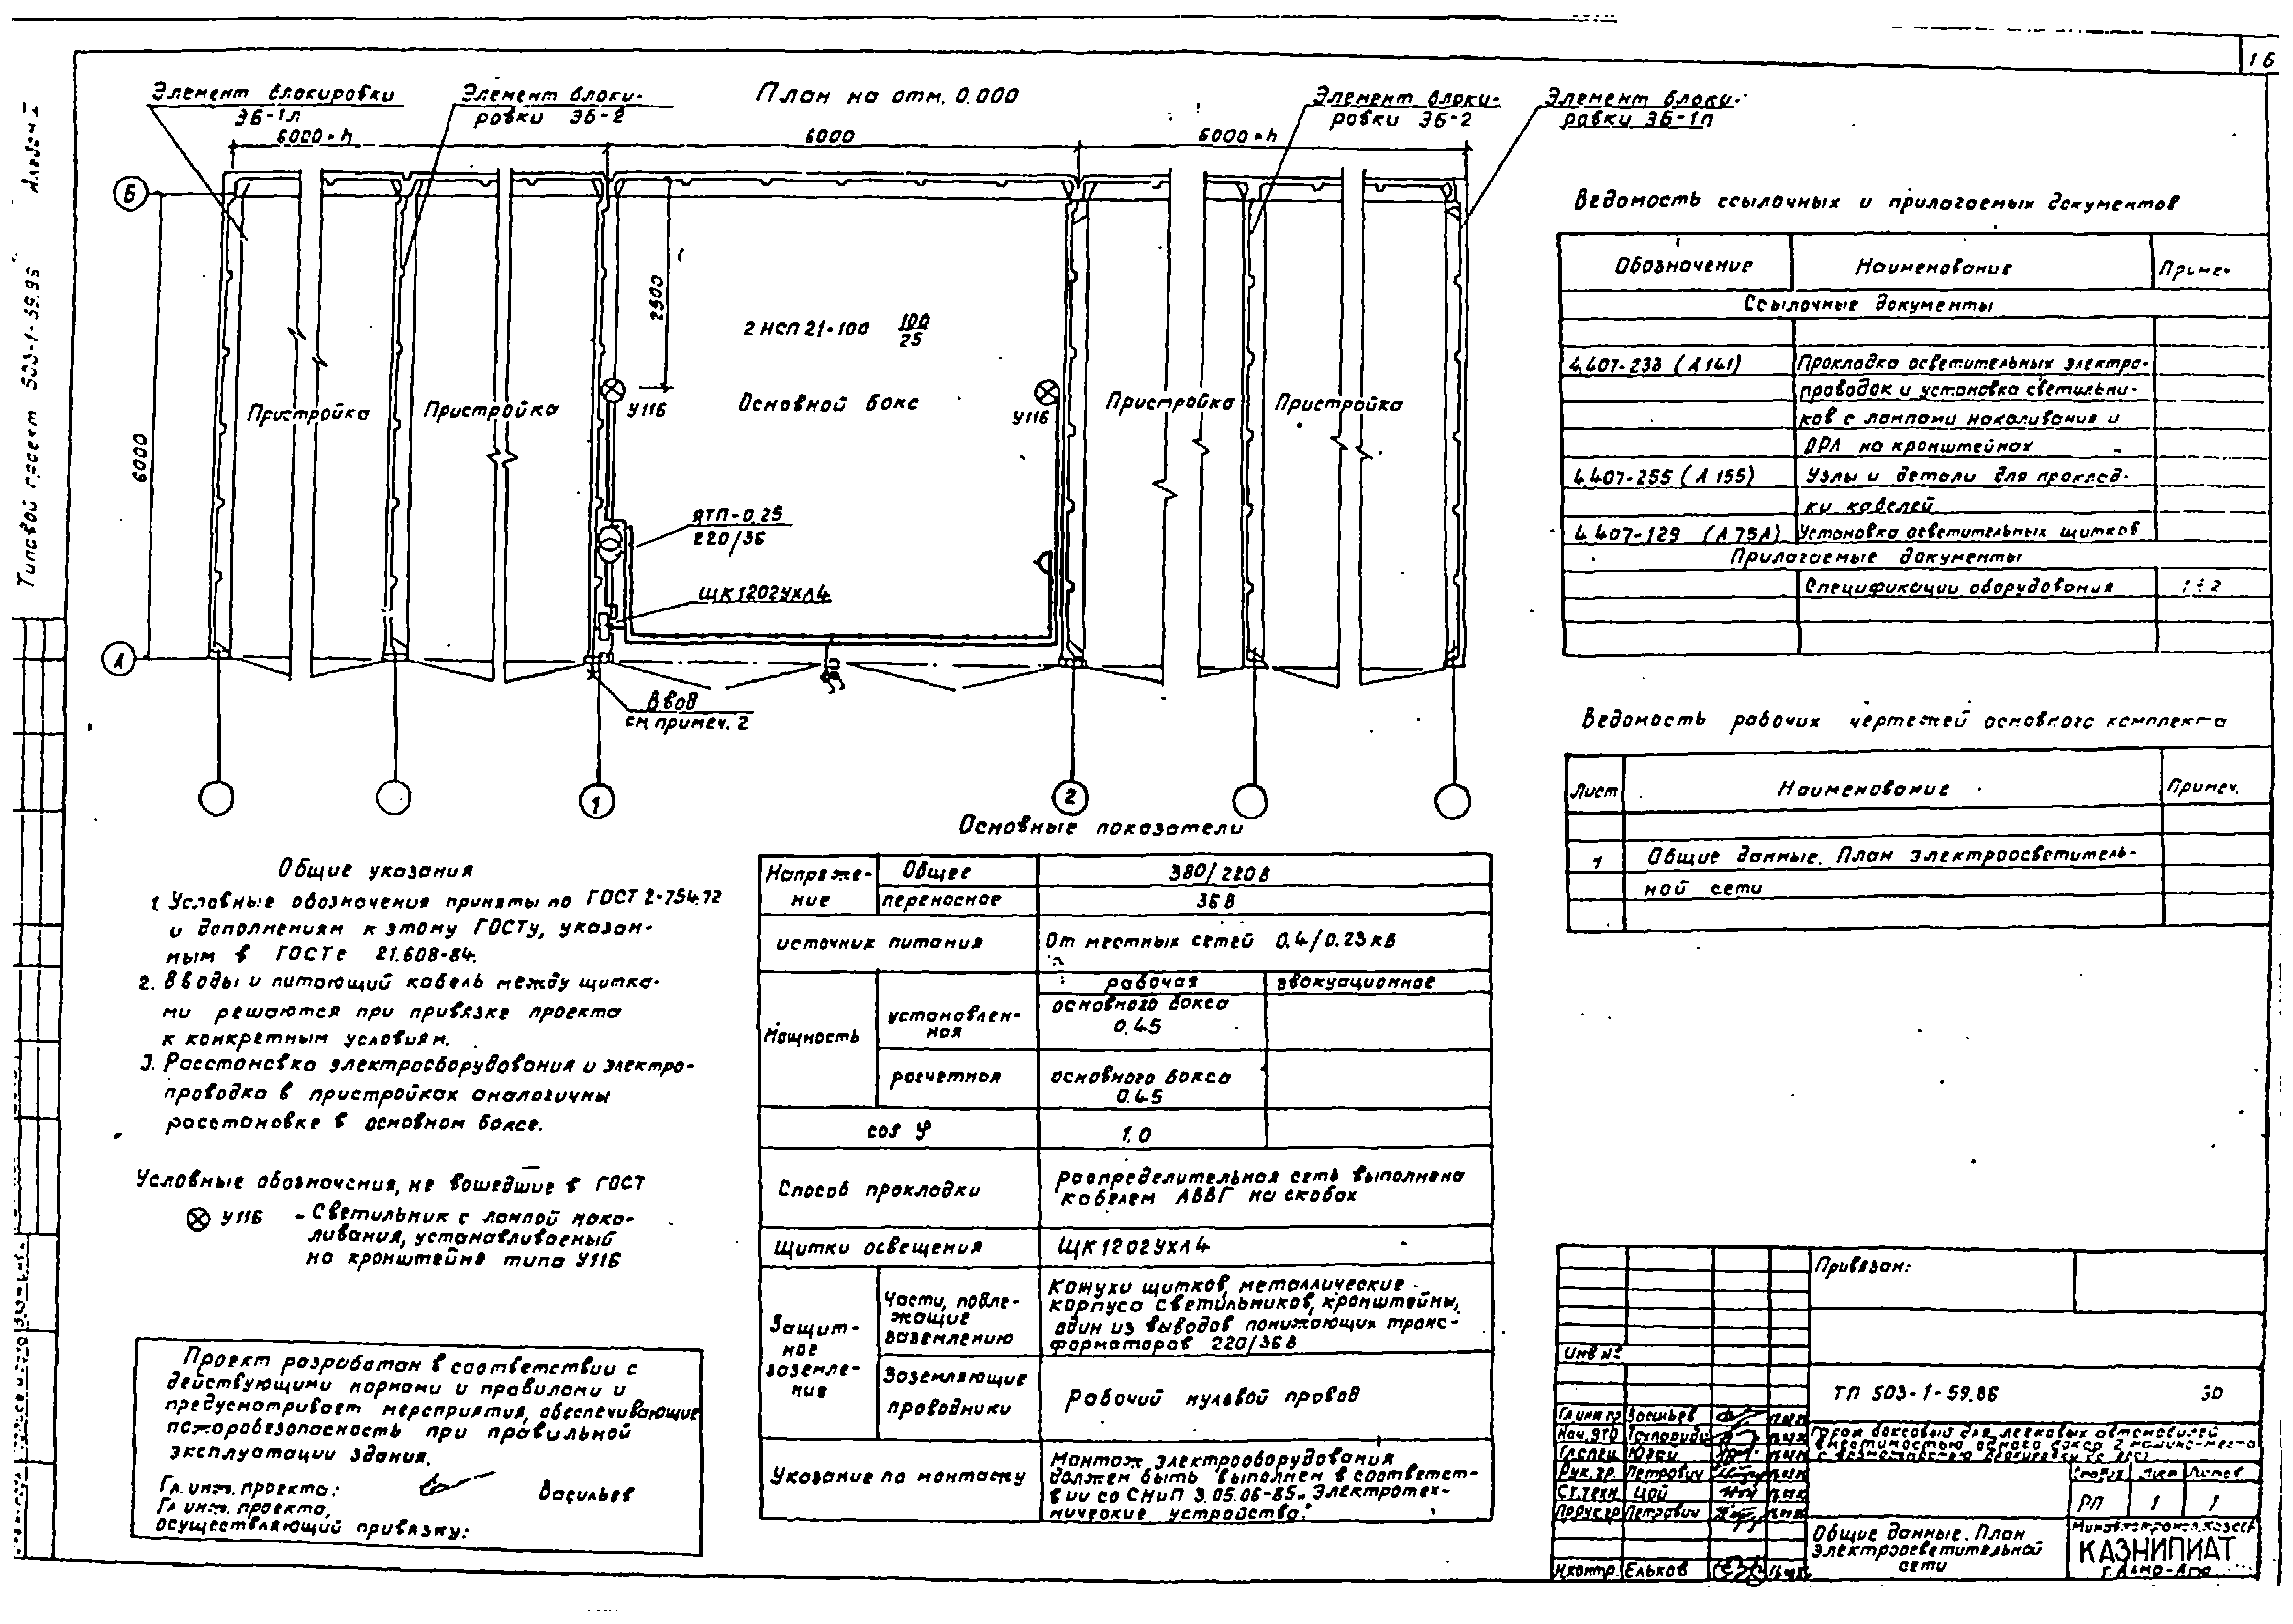 16
Альбом I
Типовой проект 503-1-59.86
Элемент блокировки
ЭБ-1л
Элемент блоки-
ровки ЭБ-2
План на отм. 0.000
Элемент блоки-
ровки ЭБ-2
Элемент блоки-
ровки ЭБ-1п
6000×n
6000
6000×n
Б
А
6000
2900
2 НСП 21-100 100/25
У116
У116
Пристройка
Пристройка
Основной бокс
Пристройка
Пристройка
ЯТП-0,25
220/36
ЩК1202УХЛ4
Ввод
см. примеч. 2
1
2
Ведомость ссылочных и прилагаемых документов
Обозначение Наименование Примеч
Ссылочные документы
4.407-233 (А141) Прокладка осветительных электро-
проводок и установка светильни-
ков с лампами накаливания и
ДРЛ на кронштейнах
4.407-255 (А155) Узлы и детали для проклад-
ки кабелей
4.407-129 (А75А) Установка осветительных щитков
Прилагаемые документы
Спецификации оборудования 1÷2
Ведомость рабочих чертежей основного комплекта
Лист Наименование Примеч.
1 Общие данные. План электроосветитель-
ной сети
Общие указания
1. Условные обозначения приняты по ГОСТ 2-754.72
и дополнениям к этому ГОСТу, указан-
ным в ГОСТе 21.608-84.
2. Вводы и питающий кабель между щитка-
ми решаются при привязке проекта
к конкретным условиям.
3. Расстановка электрооборудования и электро-
проводка в пристройках аналогичны
расстановке в основном боксе.
Условные обозначения, не вошедшие в ГОСТ
У116 - Светильник с лампой нака-
ливания, устанавливаемый
на кронштейне типа У116
Проект разработан в соответствии с
действующими нормами и правилами и
предусматривает мероприятия, обеспечивающие
пожаробезопасность при правильной
эксплуатации здания.
Гл. инж. проекта: Васильев
Гл. инж. проекта,
осуществляющий привязку:
Основные показатели
Напряже-
ние
Общее 380/220в
переносное 36В
источник питания От местных сетей 0.4/0.23кв
Мощность
рабочая эвакуационное
установлен-
ная
основного бокса
0.45
расчетная
основного бокса
0.45
cos φ 1.0
Способ прокладки
распределительная сеть выполнена
кабелем АВВГ на скобах
Щитки освещения ЩК1202УХЛ4
Защит-
ное
заземле-
ние
Части, подле-
жащие
заземлению
Кожухи щитков, металлические
корпуса светильников, кронштейны,
один из выводов понижающих транс-
форматоров 220/36В
Заземляющие
проводники
Рабочий нулевой провод
Указание по монтажу
Монтаж электрооборудования
должен быть выполнен в соответст-
вии со СНиП 3.05.06-85 „Электротех-
нические устройства".
Привязан:
Инв №
ТП 503-1-59.86 ЭО
Гл.инж.пр Васильев
Нач.ЭТО
Гл.спец. Югай
Рук.гр. Петрович
Ст.техн. Цой
Петрович
Н.контр. Ельков
Гараж боксовый для легковых автомобилей
вместимостью одного бокса 2 машино-места
Стадия Лист Листов
РП 1 1
Общие данные. План
электроосветительной
сети
КАЗНИПИАТ
г. Алма-Ата